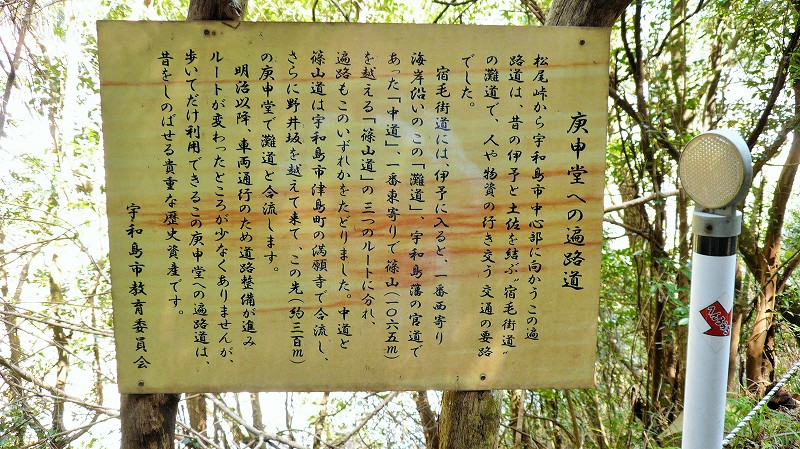 庚申堂への遍路道
松尾峠から宇和島市中心部に向かうこの遍
路道は、昔の伊予と土佐を結ぶ"宿毛街道"
の灘道で、人や物資の行き交う交通の要路
でした。
宿毛街道には、伊予に入ると、一番西寄り
海岸沿いのこの「灘道」、宇和島藩の官道で
あった「中道」、一番東寄りで篠山(一〇六五m)
を越える「篠山道」の三つのルートに分れ、
遍路もこのいずれかをたどりました。中道と
篠山道は宇和島市津島町の満願寺で合流し、
さらに野井坂を越えて来て、この先(約三百m)
の庚申堂で灘道と合流します。
明治以降、車両通行のため道路整備が進み
ルートが変わったところが少なくありませんが、
歩いてだけ利用できるこの庚申堂への遍路道は、
昔をしのばせる貴重な歴史資産です。
宇和島市教育委員会
へんろみち